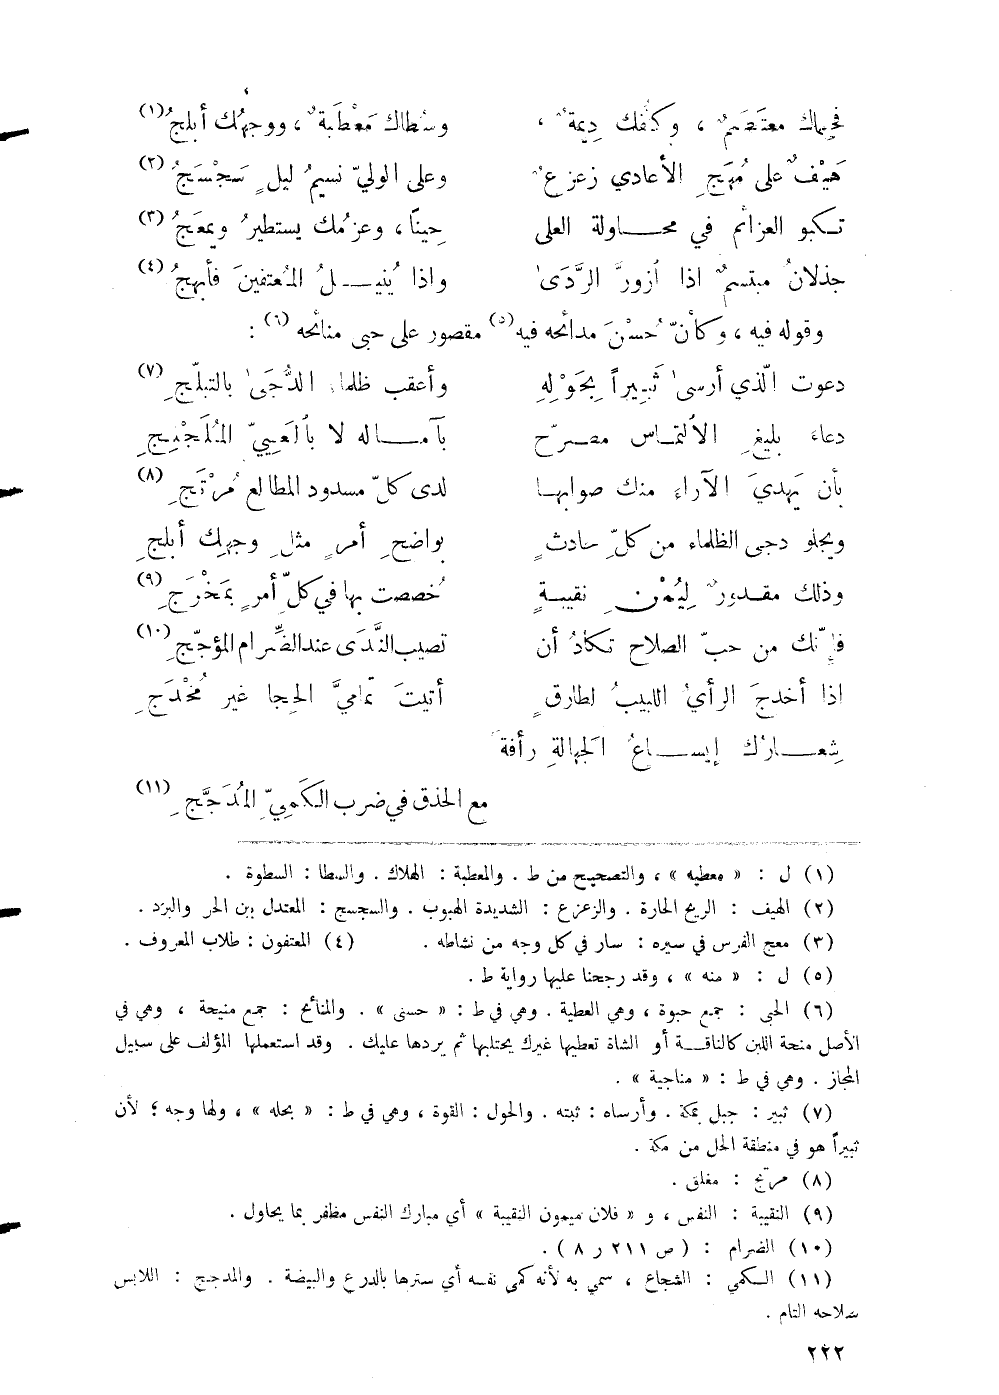 فحِماك معتَصَمٌ ، وكفّك دِيمةٌ ، وسُطاك مَعْطَبةٌ ، ووجهُك أبلجُ (١)
هَيْفٌ على مُهَجِ الأعادي زعزعٌ وعلى الوليّ نسيمُ ليلٍ سَجْسَجُ (٢)
تكبو العزائم في محـاولة العلى حِيناً ، وعزمُك يستطيرُ ويمعَجُ (٣)
جذلانُ مبتسمٌ اذا ازورَّ الرَّدَى واذا يُنيـلُ المُعتفينَ فأبهجُ (٤)
وقوله فيه ، وكأنّ حُسْنَ مدائحه فيه (٥) مقصور على حبى منائحه (٦) :
دعوت الّذي أرسى ثَبِيراً بِحَوْلِهِ وأعقب ظلماء الدُّجَى بالتبلّجِ (٧)
دعاء بليغِ الألتمـاس مصـرِّح بآمـاله لا بألعَييّ المُلَجْلِجِ
بأن يَهديَ الآراء منك صوابهـا لدى كلّ مسدود المطالع مُرْتَجِ (٨)
ويجلو دجى الظلماء من كلّ حادثٍ بواضحِ أمرٍ مثلِ وجهِك أبلجِ
وذلك مقـدورٌ لِيُمْنِ نقيبـةٍ خُصصت بها في كلّ أمرٍ بمَخْرَجِ (٩)
فإنّك من حبّ الصلاح تكادُ أن تصيب النَّدَى عند الضِّرام المؤجّجِ (١٠)
اذا أخدجَ الرأيَ اللبيبُ لطارقٍ أتيتَ تماميَّ الحِجا غير مُخْدَجِ
شِعـارُك إيسـاعُ الجهالةِ رأفةً
مع الحذق في ضرب الكَمِيِّ المُدَجَّجِ (١١)
(١) ل : « معطيه » ، والتصحيح من ط . والمعطبة : الهلاك . والسطا : السطوة .
(٢) الهيف : الريح الحارة . والزعزع : الشديدة الهبوب . والسجسج : المعتدل بين الحر والبرد .
(٣) معج الفرس في سيره : سار في كل وجه من نشاطه . (٤) المعتفون : طلاب المعروف .
(٥) ل : « منه » ، وقد رجحنا عليها رواية ط .
(٦) الحبى : جمع حبوة ، وهي العطية . وهي في ط : « حسنى » . والمنائح : جمع منيحة ، وهي في
الأصل منحة اللبن كالناقـة أو الشاة تعطيها غيرك يحتلبها ثم يردها عليك . وقد استعملها المؤلف على سبيل
المجاز . وهي في ط : « مناجية » .
(٧) ثبير : جبل بمكة . وأرساه : ثبته . والحول : القوة ، وهي في ط : « بحله » ، ولها وجه ؛ لأن
ثبيراً هو في منطقة الحل من مكة .
(٨) مرتج : مغلق .
(٩) النقيبة : النفس ، و « فلان ميمون النقيبة » أي مبارك النفس مظفر بما يحاول .
(١٠) الضرام : ( ص ٢١١ ر ٨ ) .
(١١) الكمي : الشجاع ، سمي به لأنه كمى نفسه أي سترها بالدرع والبيضة . والمدجج : اللابس
سلاحه التام .
٢٢٢